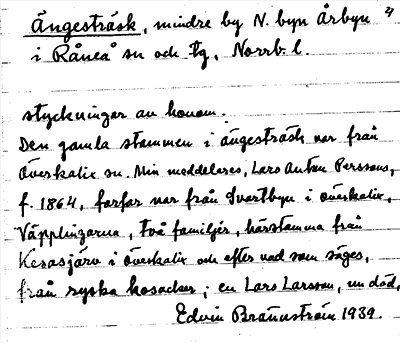 Ängesträsk, mindre by N. byn Årbyn 4
i Råneå sn och tg, Norrb. l.
styckningar av honom.
Den gamla stammen i ängesträsk var från
Överkalix sn. Min meddelares, Lars Anton Perssons,
f. 1864, farfar var från Svartbyn i överkalix,
Väpplingarna, två familjer, härstamma från
Kesasjärv i överkalix och efter vad som säges,
från ryska kosacker; en Lars Larsson, nu död,
Edvin Brännström 1939.